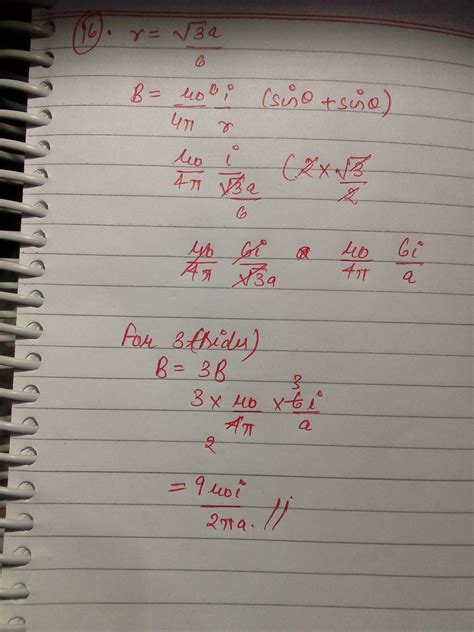 96. r = √3a/6
B = μ0/4π i/r (sinθ + sinθ)
μ0/4π i/(√3a/6) (2 × √3/2
μ0/4π 6i/√3a μ0/4π 6i/a
For 3 (sides)
B = 3B
3 × μ0/4π × 6i/a 3
2
= 9μ0i/2πa. //